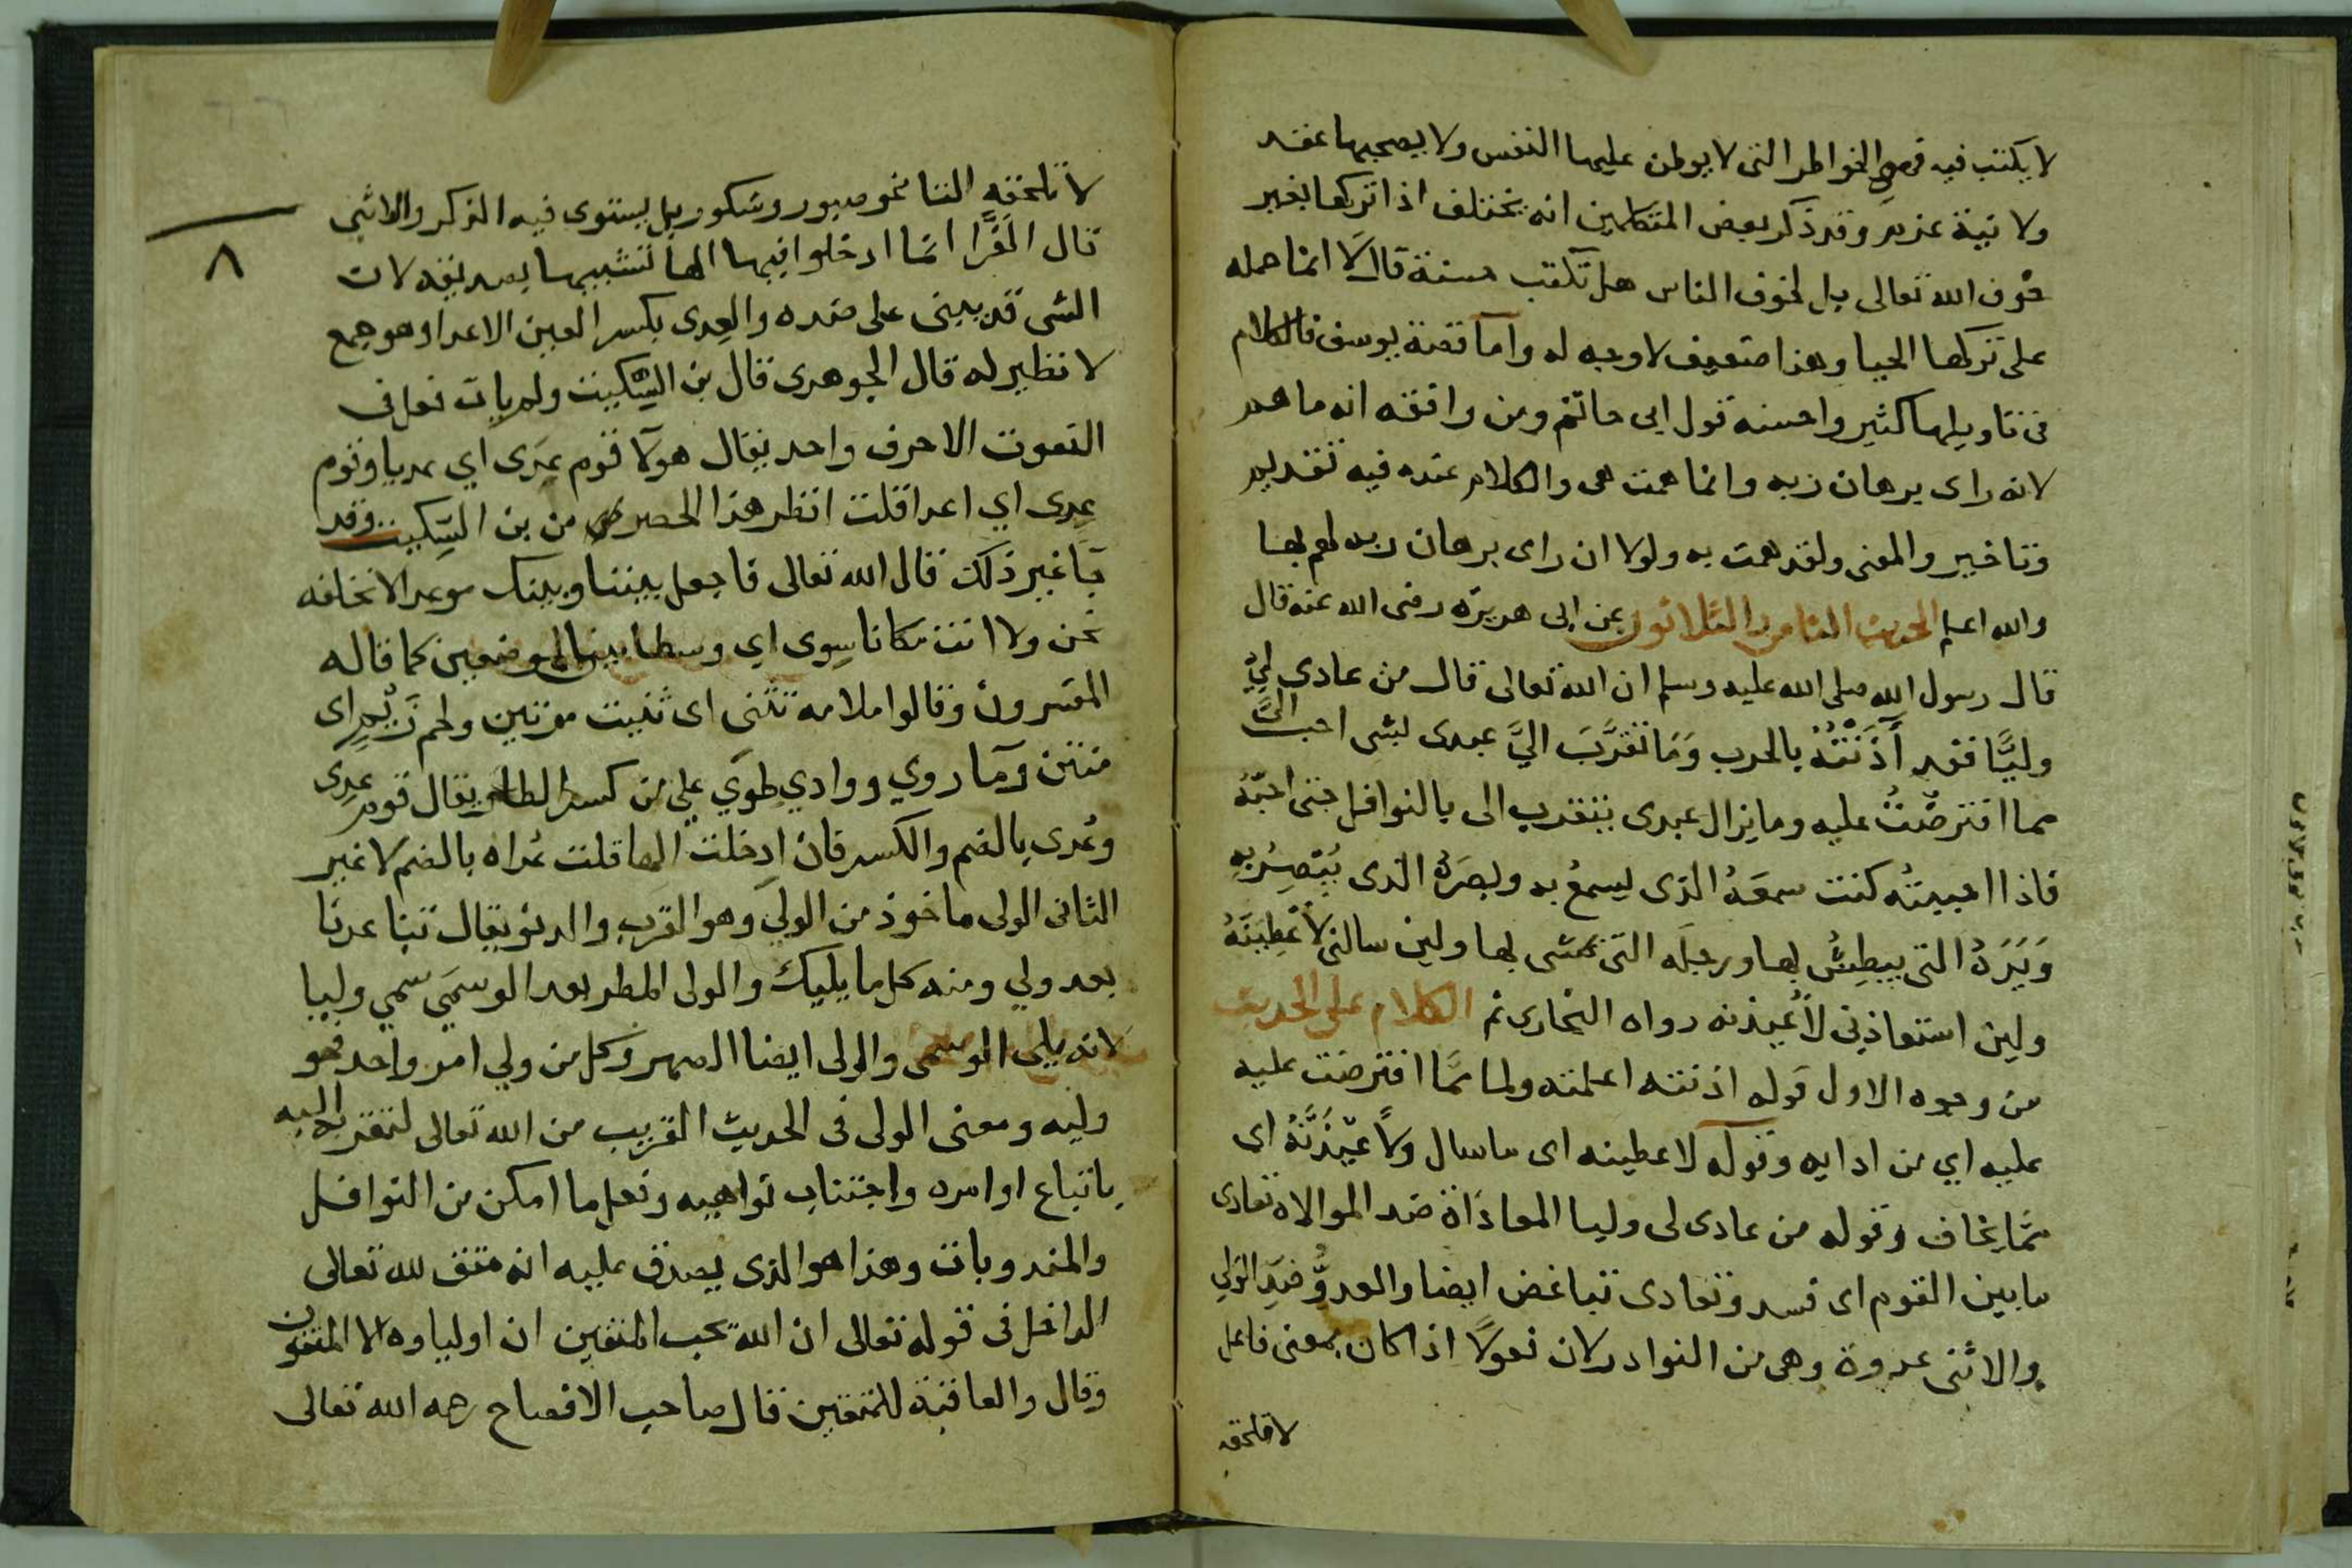 لا يكتب فيه فهي الخواطر التى لا يوطن عليها النفس ولا يصحبها عقد
ولا نية عزم وقد ذكر بعض المتكلمين انه يختلف اذا تركها بغير
خوف الله تعالى بل لخوف الناس هل تكتب حسنة قال لا انما حمله
على تركها الحيا وهذا ضعيف لا وجه له واما قصة يوسف فالكلام
فى تاويلها كثير واحسنه قول ابى حاتم ومن وافقه انه ما هم
لانه راى برهان ربه وانما همت هى والكلام عنده فيه تقديم
وتاخير والمعنى ولقد همت به ولولا ان راى برهان ربه لهم بها
والله اعلم الحديث الثامن والثلاثون عن ابى هريرة رضى الله عنه قال
قال رسول الله صلى الله عليه وسلم ان الله تعالى قال من عادى لِيْ
وليًّا فقد آذَنْتُهُ بالحرب وَمَا تقرَّبَ اليَّ عبدى بشى احب اليَّ
مما افترضْتُ عليه وما يزال عبدى يتقرب الى بالنوافل حتى احبّهُ
فاذا احببتُه كنت سمعَهُ الذى يسمعُ به وبصَرَهُ الذى يُبْصِرُ بِهِ
وَيَدَهُ التى يبطِشُ بها ورجلَه التى يمشى بها ولين سالنى لأعْطِيَنَّهُ
ولين استعاذنى لأُعيذنه رواه البخارى ثم الكلام على الحديث
من وجوه الاول قوله اذنته اعلمته ولما مَّا افترضت عليه
عليه اي من ادايه وقوله لاعطينه اى ما سال ولأعيْذَنَّهُ اى
مَّما يخاف وقوله من عادى لى وليا المعاذاة ضد الموالاه تعادى
ما بين القوم اى فسد وتعادى تباغض ايضا والعدوُّ ضد الوَلِي
والانثى عدوة وهى من النوادر لان فعولًا اذا كان بمعنى فاعل
لا تلحقه
٨
لا تلحقه التا نحو صبور وشكور بل يستوى فيه الذكر والانثى
قال الفَرَّا انما ادخلوا فيها الها تشبيها بصديقه لان
الشى قد يبنى على ضده والعِدى بكسر العين الاعدا وهو جمع
لا نظير له قال الجوهرى قال بن السِّكيت ولم يات فعل فى
النعوت الا حرف واحد يقال هولآ قوم عِدَى اي عديا وقوم
عِدى اي اعدا قلت انظر هذا الحصر من بن السِّكيت وقد
جَا غير ذلك قال الله تعالى فاجعل بيننا وبينك موعدا لا نخلفه
نحن ولا انت مكانا سِوى اي وسطا بين الموضعين كما قاله
المفسرون وقالوا ملامه تثنى اى ثنيت مرتين ولحم زيم اى
منتن وما روي ووادي طِوَي على من كسر الطا ويقال قوم عِدى
وعُدى بالضم والكسر فان ادخلت الها قلت عُداه بالضم لا غير
الثانى الولى ماخوذ من الولِي وهو القرب والدنو يقال تباعدنا
بعد ولي ومنه كل ما يليك والولى المطر بعد الوسمَي سمي وليا
لانه يلى الوسمى والولى ايضا الصهر وكل من ولي امر واحد فهو
وليه ومعنى الولى فى الحديث القريب من الله تعالى لتقربه اليه
باتباع اوامره واجتناب نواهيه وفعل ما امكن من النوافل
والمندوبات وهذا هو الذى يصدق عليه انه متق لله تعالى
الداخل فى قوله تعالى ان الله يحب المتقين ان اولياوه الا المتقون
وقال والعاقبة للمتقين قال صاحب الافصاح رحمه الله تعالى